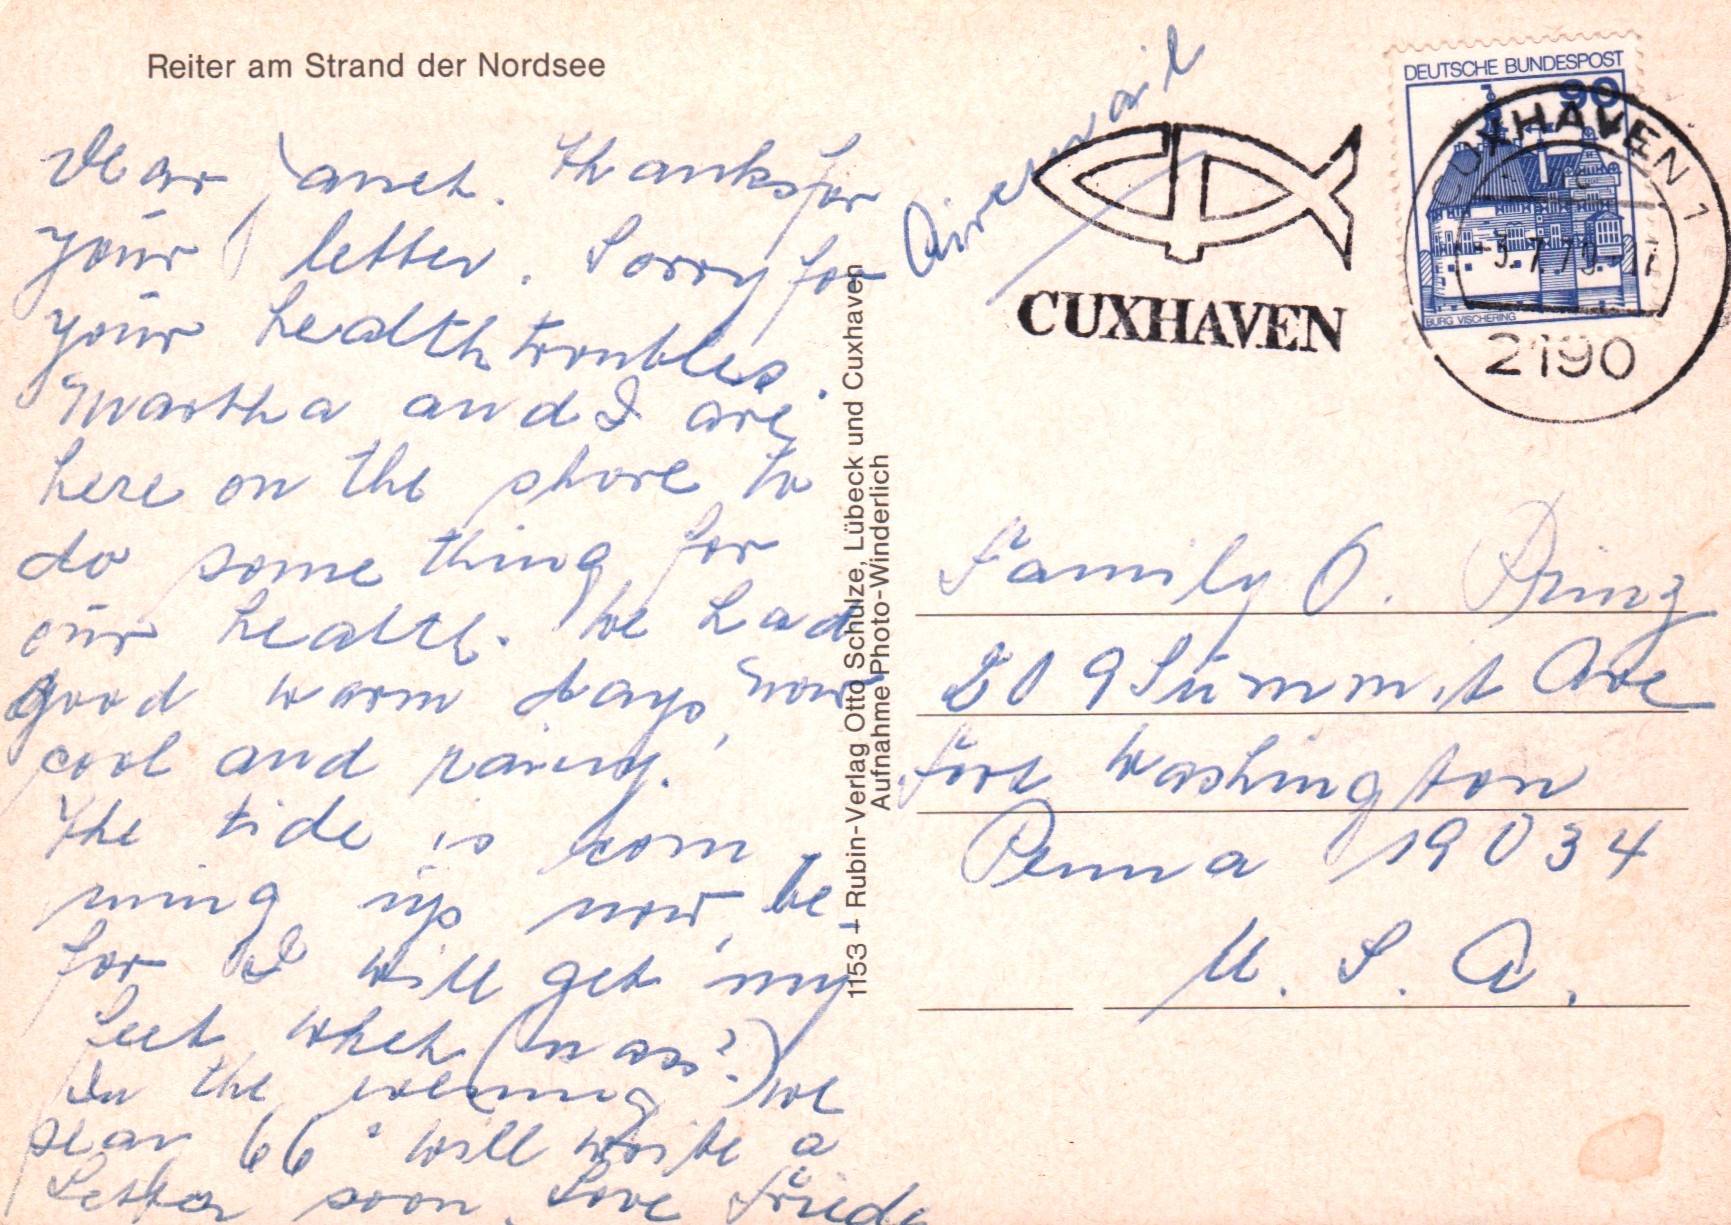 Reiter am Strand der Nordsee
Dear Janet. Thanks for
your letter. Sorry for
your health troubles.
Martha and I are
here on the shore to
do some thing for
our health. We had
good warm days, now
cool and rainy.
The tide is com
ming up now, be
for I will get my
feet whet (nass?)
In the evening we
pear 66° will write a
Letter soon. Love Friede
1153 – Rubin-Verlag Otto Schulze, Lübeck und Cuxhaven
Aufnahme Photo-Winderlich
Airemail
CUXHAVEN
DEUTSCHE BUNDESPOST
90
BURG VISCHERING
CUXHAVEN 1
-3.7.79-17
2190
Family O. Pring
209 Summit Ave
Fort Washington
Penna 19034
U. S. A.